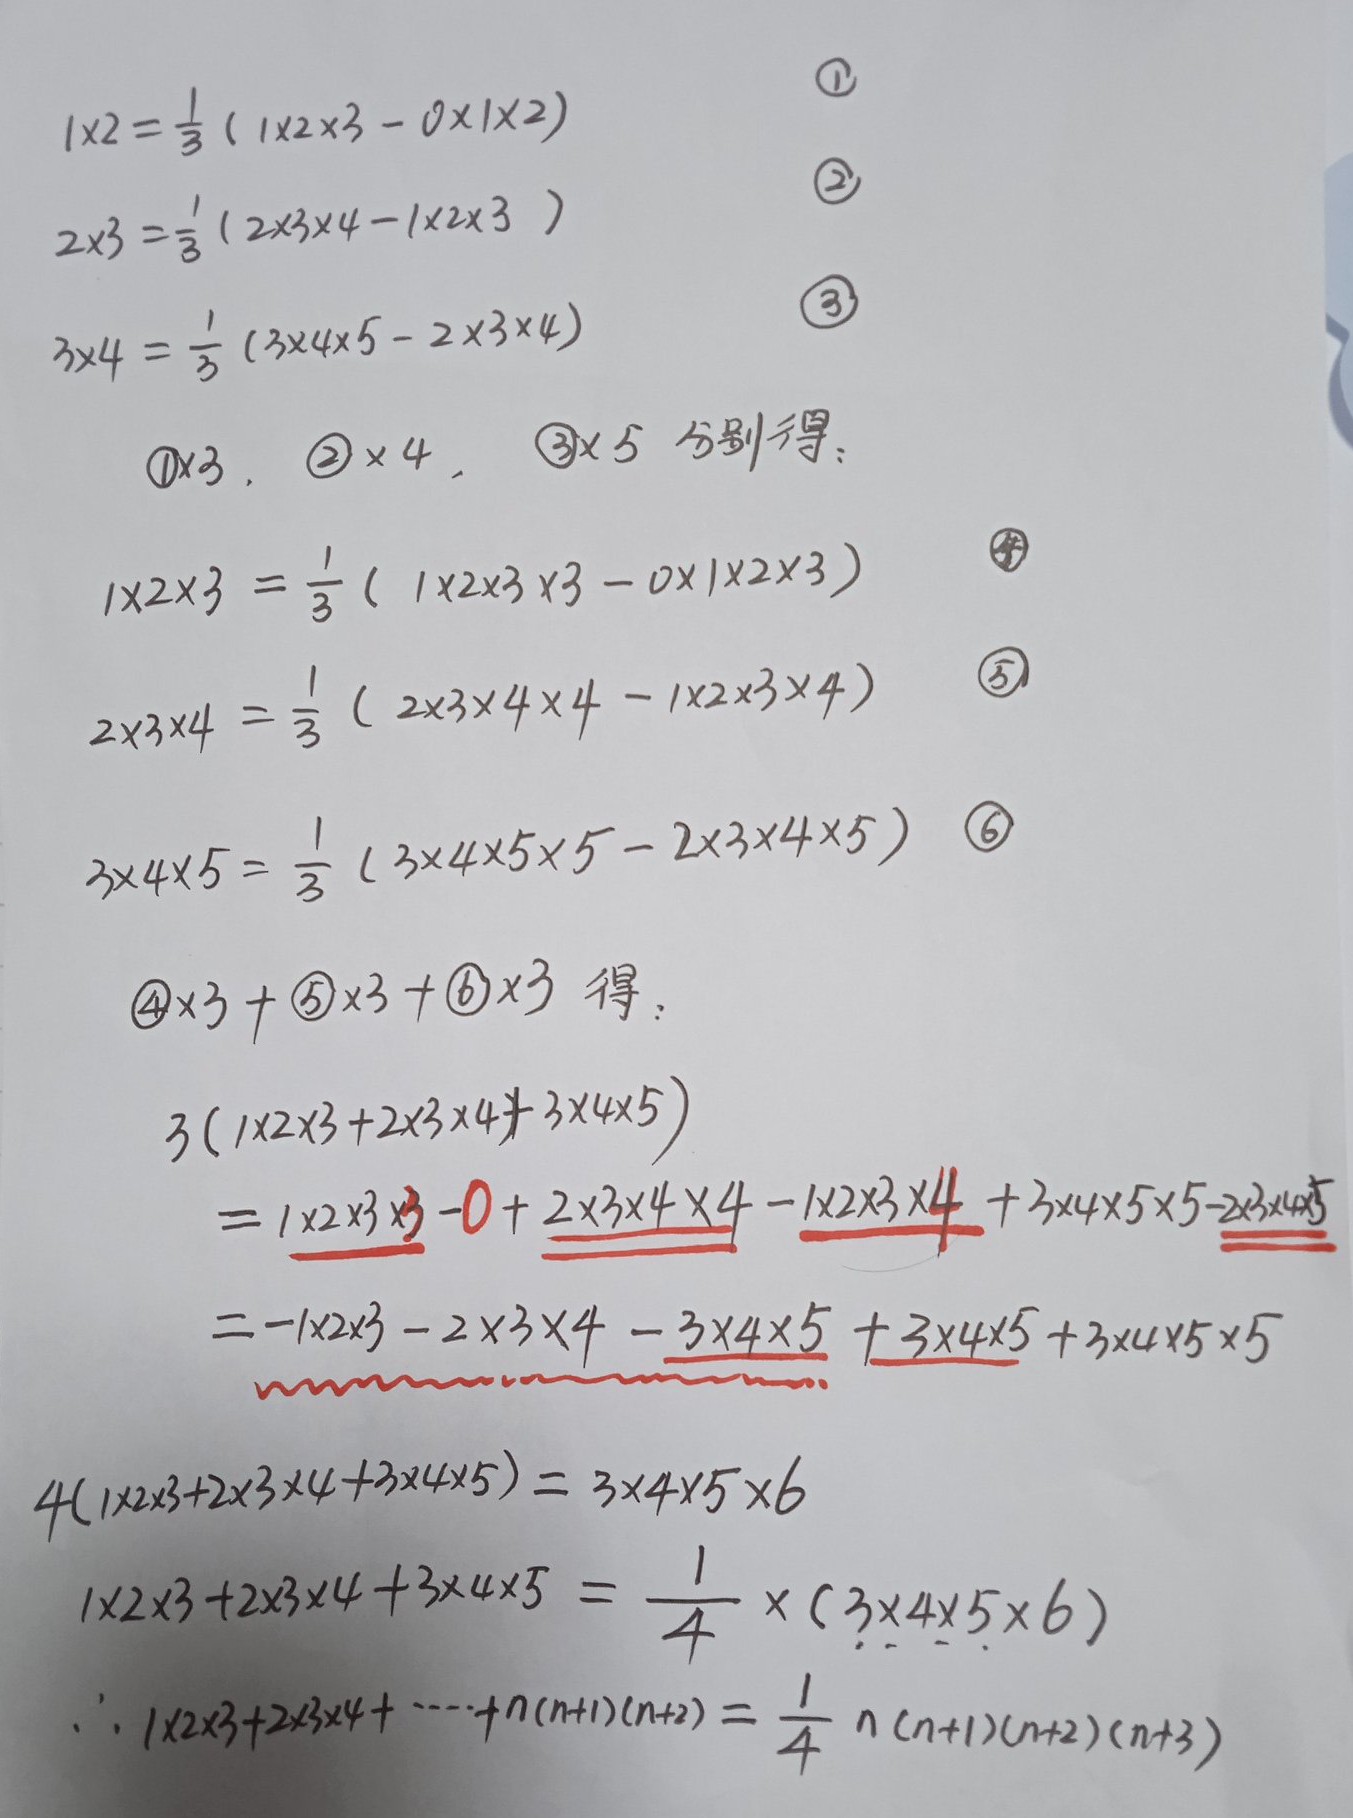 1×2=1/3(1×2×3-0×1×2) ①
2×3=1/3(2×3×4-1×2×3) ②
3×4=1/3(3×4×5-2×3×4) ③
①×3. ②×4. ③×5 分别得:
1×2×3=1/3(1×2×3×3-0×1×2×3) ④
2×3×4=1/3(2×3×4×4-1×2×3×4) ⑤
3×4×5=1/3(3×4×5×5-2×3×4×5) ⑥
④×3+⑤×3+⑥×3 得:
3(1×2×3+2×3×4+3×4×5)
=1×2×3×3-0+2×3×4×4-1×2×3×4+3×4×5×5-2×3×4×5
=-1×2×3-2×3×4-3×4×5+3×4×5+3×4×5×5
4(1×2×3+2×3×4+3×4×5)=3×4×5×6
1×2×3+2×3×4+3×4×5=1/4×(3×4×5×6)
∴1×2×3+2×3×4+……+n(n+1)(n+2)=1/4 n(n+1)(n+2)(n+3)